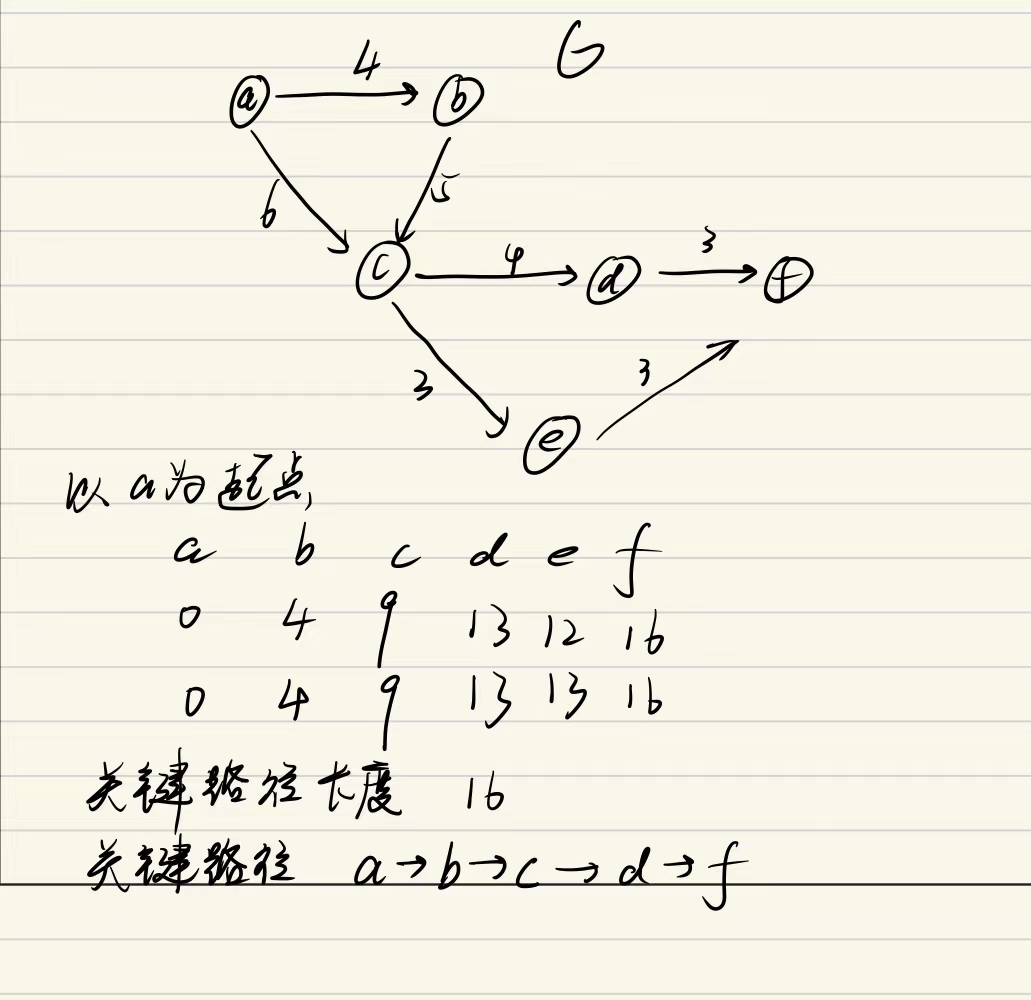 G
4
a b
6 5
c 4 d 3 f
3 3
e
以a为起点,
a b c d e f
0 4 9 13 12 16
0 4 9 13 13 16
关键路径长度 16
关键路径 a→b→c→d→f